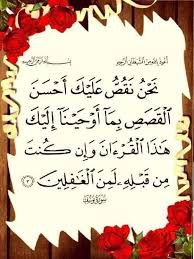 أعوذ بالله من الشيطان الرجيم
بسم الله الرحمن الرحيم
نَحْنُ نَقُصُّ عَلَيْكَ أَحْسَنَ
ٱلْقَصَصِ بِمَآ أَوْحَيْنَآ إِلَيْكَ
هَٰذَا ٱلْقُرْءَانَ وَإِن كُنتَ
مِن قَبْلِهِۦ لَمِنَ ٱلْغَٰفِلِينَ ٣
سورة يوسف